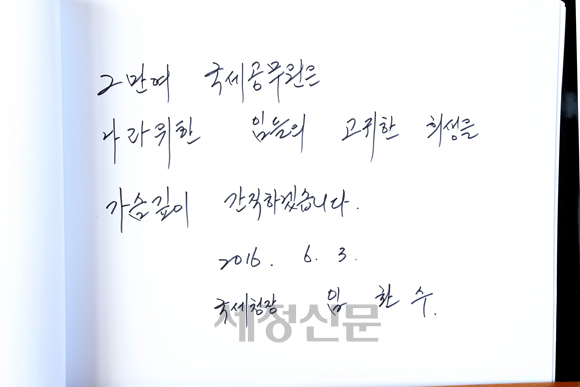 2만여 국세공무원은
나라위한 임들의 고귀한 희생을
가슴깊이 간직하겠습니다.
2016. 6. 3.
국세청장 임 환 수.
세정신문